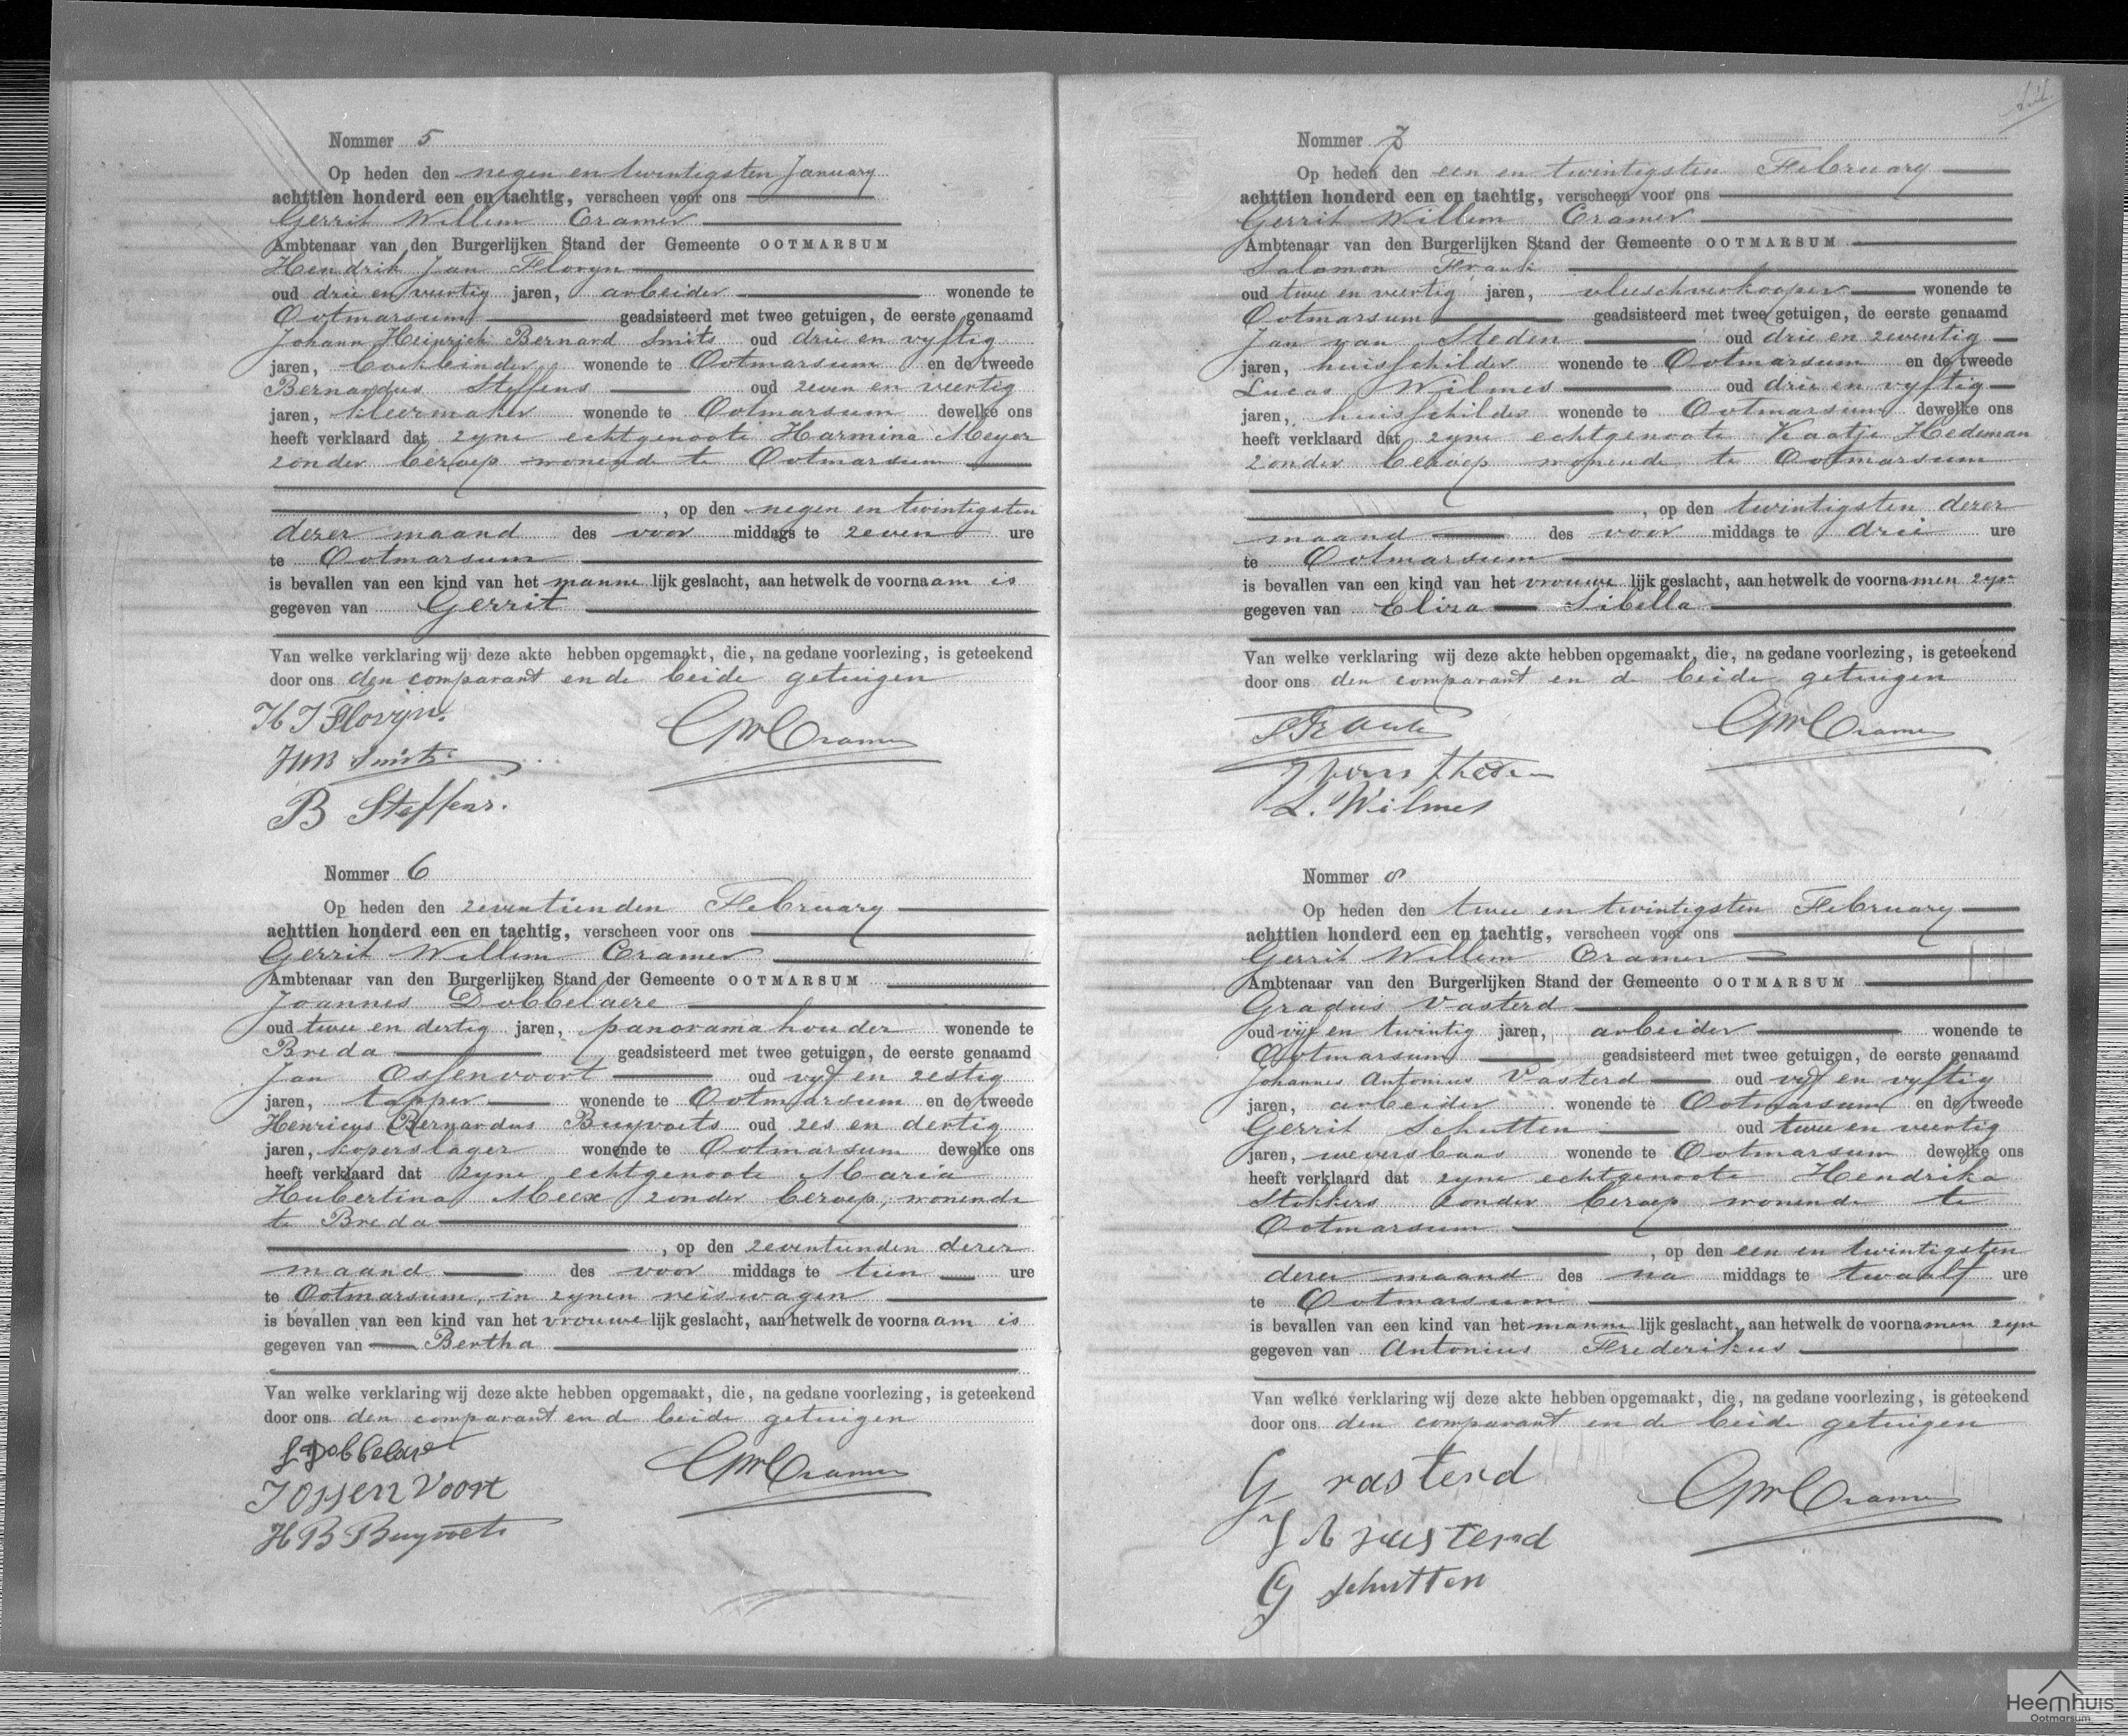 Nommer 5
Op heden den negen en twintigsten January
achttien honderd een en tachtig, verscheen voor ons
Gerrit Willem Cramer
Ambtenaar van den Burgerlijken Stand der Gemeente OOTMARSUM
Hendrik Jan Floryn
oud drie en veertig jaren, arbeider wonende te
Ootmarsum geadsisteerd met twee getuigen, de eerste genaamd
Johann Heinrich Bernard Smits oud drie en vyftig
jaren, boekbinder wonende te Ootmarsum en de tweede
Bernardus Steffens oud zeven en veertig
jaren, kleermaker wonende te Ootmarsum dewelke ons
heeft verklaard dat zyne echtgenoote Harmina Meyer
zonder beroep wonende te Ootmarsum
, op den negen en twintigsten
dezer maand des voor middags te zeven ure
te Ootmarsum
is bevallen van een kind van het mannelijk geslacht, aan hetwelk de voornaam is
gegeven van Gerrit
Van welke verklaring wij deze akte hebben opgemaakt, die, na gedane voorlezing, is geteekend
door ons den comparant en de beide getuigen
H J Floryn.
GWCramer
JHB Smits
B Steffens.
Nommer 6
Op heden den zeventienden February
achttien honderd een en tachtig, verscheen voor ons
Gerrit Willem Cramer
Ambtenaar van den Burgerlijken Stand der Gemeente OOTMARSUM
Joannes Dobbelaere
oud twee en dertig jaren, panoramahouder wonende te
Breda geadsisteerd met twee getuigen, de eerste genaamd
Jan Ossenvoort oud vyf en zestig
jaren, tapper wonende te Ootmarsum en de tweede
Henricus Bernardus Buyvoets oud zes en dertig
jaren, koperslager wonende te Ootmarsum dewelke ons
heeft verklaard dat zyne echtgenoote Maria
Hubertina Meex zonder beroep, wonende
te Breda
, op den zeventienden dezer
maand des voor middags te tien ure
te Ootmarsum, in zynen reiswagen
is bevallen van een kind van het vrouwelijk geslacht, aan hetwelk de voornaam is
gegeven van Bertha
Van welke verklaring wij deze akte hebben opgemaakt, die, na gedane voorlezing, is geteekend
door ons den comparant en de beide getuigen
J Dobbelaere
GWCramer
J Ossenvoort
H B Buyvoets
Nommer 7
Op heden den een en twintigsten February
achttien honderd een en tachtig, verscheen voor ons
Gerrit Willem Cramer
Ambtenaar van den Burgerlijken Stand der Gemeente OOTMARSUM
Salomon Frank
oud twee en veertig jaren, vleeschverkooper wonende te
Ootmarsum geadsisteerd met twee getuigen, de eerste genaamd
Jan van Steden oud drie en zeventig
jaren, huisschilder wonende te Ootmarsum en de tweede
Lucas Wilmes oud drie en vyftig
jaren, huisschilder wonende te Ootmarsum dewelke ons
heeft verklaard dat zyne echtgenoote Kaatje Hedeman
zonder beroep wonende te Ootmarsum
, op den twintigsten dezer
maand des voor middags te drie ure
te Ootmarsum
is bevallen van een kind van het vrouwelijk geslacht, aan hetwelk de voornamen zyn
gegeven van Eliza Sibella
Van welke verklaring wij deze akte hebben opgemaakt, die, na gedane voorlezing, is geteekend
door ons den comparant en de beide getuigen
S Frank
GWCramer
J van Steden
L. Wilmes
Nommer 8
Op heden den twee en twintigsten February
achttien honderd een en tachtig, verscheen voor ons
Gerrit Willem Cramer
Ambtenaar van den Burgerlijken Stand der Gemeente OOTMARSUM
Gradus Vasterd
oud vijf en twintig jaren, arbeider wonende te
Ootmarsum geadsisteerd met twee getuigen, de eerste genaamd
Johannes Antonius Vasterd oud vyf en vyftig
jaren, arbeider wonende te Ootmarsum en de tweede
Gerrit Schutten oud twee en veertig
jaren, weversbaas wonende te Ootmarsum dewelke ons
heeft verklaard dat zyne echtgenoote Hendrika
Stokkers zonder beroep wonende te
Ootmarsum
, op den een en twintigsten
dezer maand des na middags te twaalf ure
te Ootmarsum
is bevallen van een kind van het mannelijk geslacht, aan hetwelk de voornamen zyn
gegeven van Antonius Frederikus
Van welke verklaring wij deze akte hebben opgemaakt, die, na gedane voorlezing, is geteekend
door ons den comparant en de beide getuigen
G vasterd
GWCramer
J A vasterd
G Schutten
Heemhuis
Ootmarsum